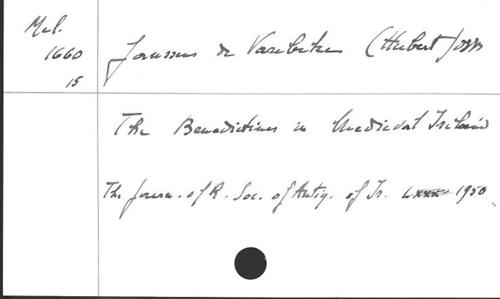 Mel.
1660
15
Janssens de Varebeke (Hubert Josse
The Benedictines in Mediaeval Ireland
The Journ. of R. Soc. of Antiq. of Ir. 1950